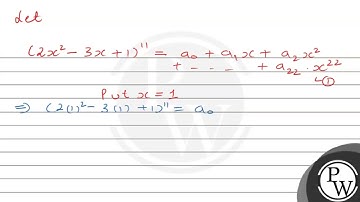 Let
(2x² - 3x + 1)¹¹ = a₀ + a₁x + a₂x²
+ - - - + a₂₂ · x²²
↳①
Put x = 1
⇒ (2(1)² - 3(1) + 1)¹¹ = a₀
PW
PW